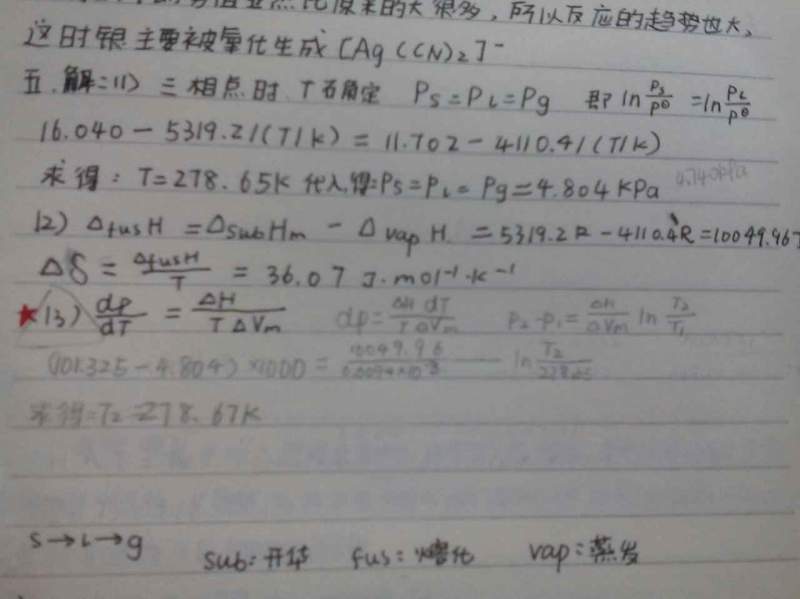 大很多,所以反应的趋势也大,
这时银主要被氧化生成[Ag(CN)₂]⁻
五.解:(1) 三相点时.T石角定 Ps=PL=Pg 即 ln Ps/P⊖ = ln PL/P⊖
16.040-5319.2/(T/K)=11.702-4110.4/(T/K)
求得:T=278.65K 代入得:Ps=PL=Pg=4.804KPa
(2) ΔfusH=ΔsubHm-ΔvapH=5319.2R-4110.4R=10049.96J
ΔS=ΔfusH/T=36.07 J·mol⁻¹·K⁻¹
★(3) dp/dT=ΔH/TΔVm dp=ΔH dT/TΔVm P₂-P₁=ΔH/ΔVm ln T₂/T₁
(101.325-4.804)×1000= ln T₂/278.65
求得:T₂=278.67K
S→L→g sub:升华 fus:熔化 vap:蒸发